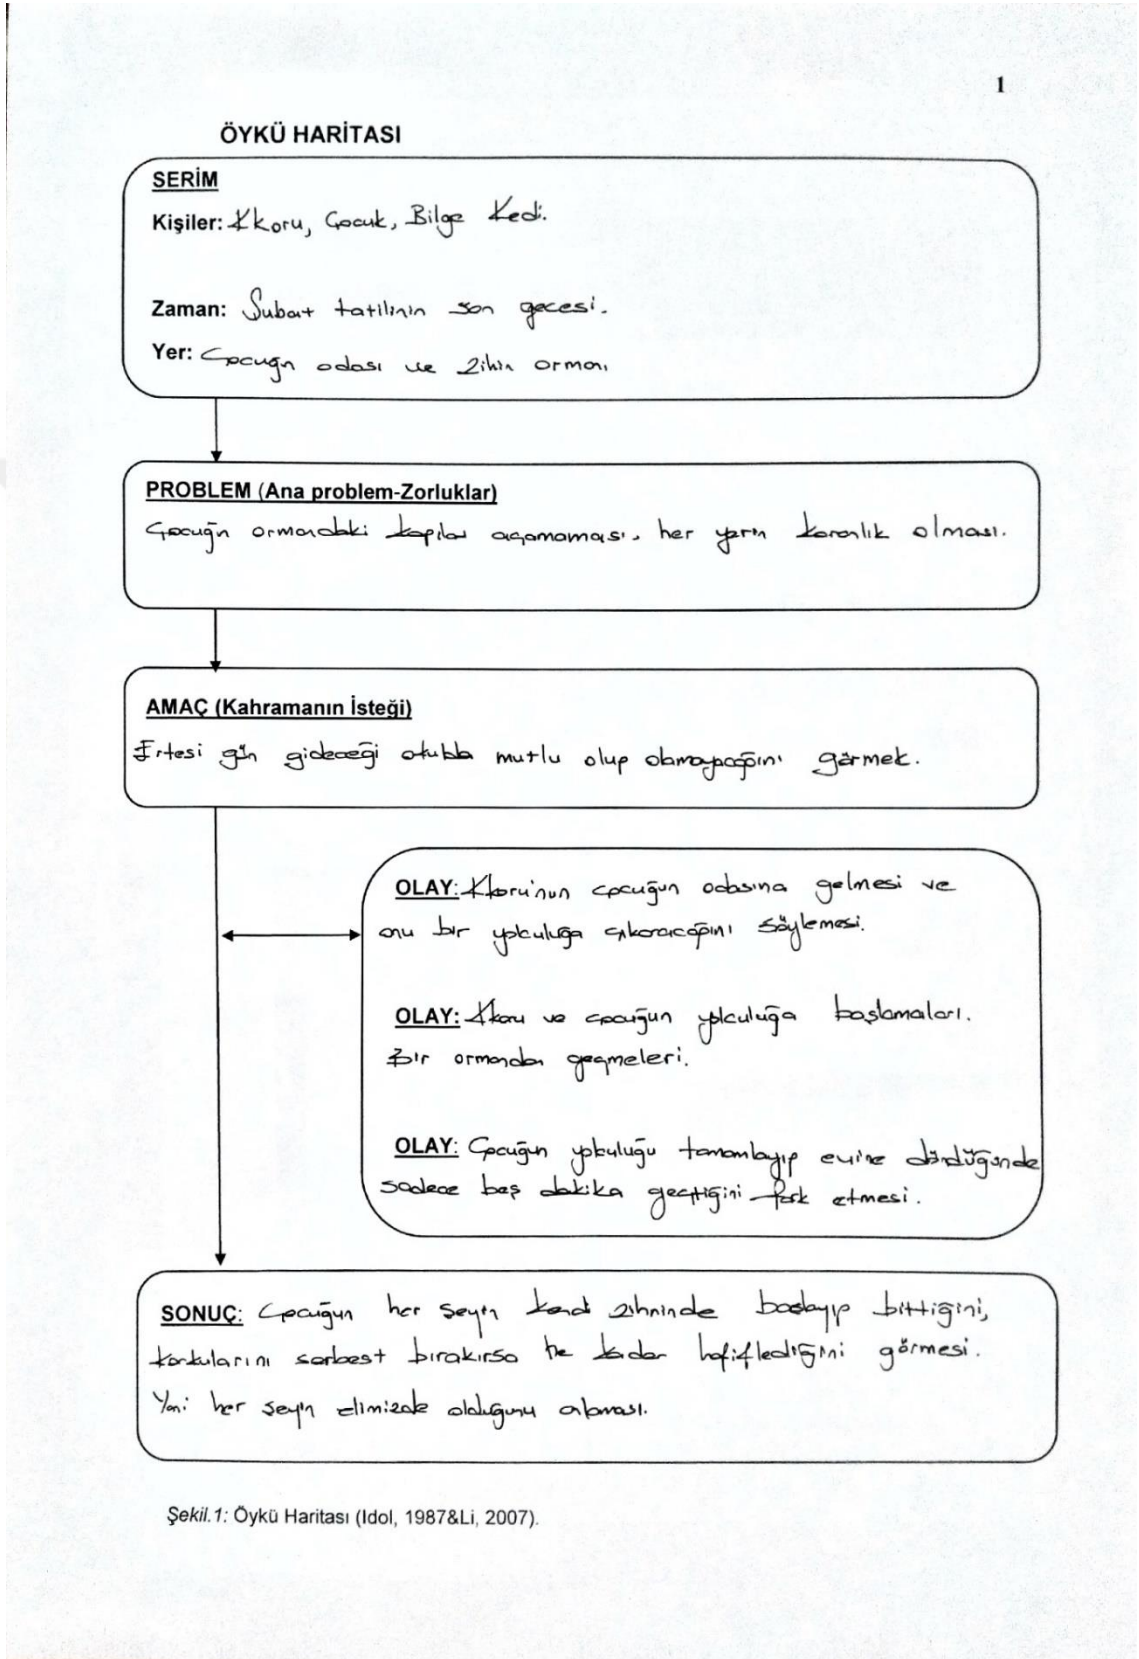 1
ÖYKÜ HARİTASI
SERİM
Kişiler: Kkoru, Çocuk, Bilge Kedi.
Zaman: Şubat tatilinin son gecesi.
Yer: Çocuğun odası ve zihin ormanı
PROBLEM (Ana problem-Zorluklar)
Çocuğun ormandaki kapıları açamaması, her yerin karanlık olması.
AMAÇ (Kahramanın İsteği)
Ertesi gün gideceği okulda mutlu olup olamayacağını görmek.
OLAY: Kkoru'nun çocuğun odasına gelmesi ve
onu bir yolculuğa çıkaracağını söylemesi.
OLAY: Kkoru ve çocuğun yolculuğa başlamaları.
Bir ormandan geçmeleri.
OLAY: Çocuğun yolculuğu tamamlayıp evine döndüğünde
sadece beş dakika geçtiğini fark etmesi.
SONUÇ: Çocuğun her şeyin kendi zihninde başlayıp bittiğini,
korkularını serbest bırakırsa ne kadar hafiflediğini görmesi.
Yani her şeyin elimizde olduğunu anlaması.
Şekil.1: Öykü Haritası (Idol, 1987&Li, 2007).